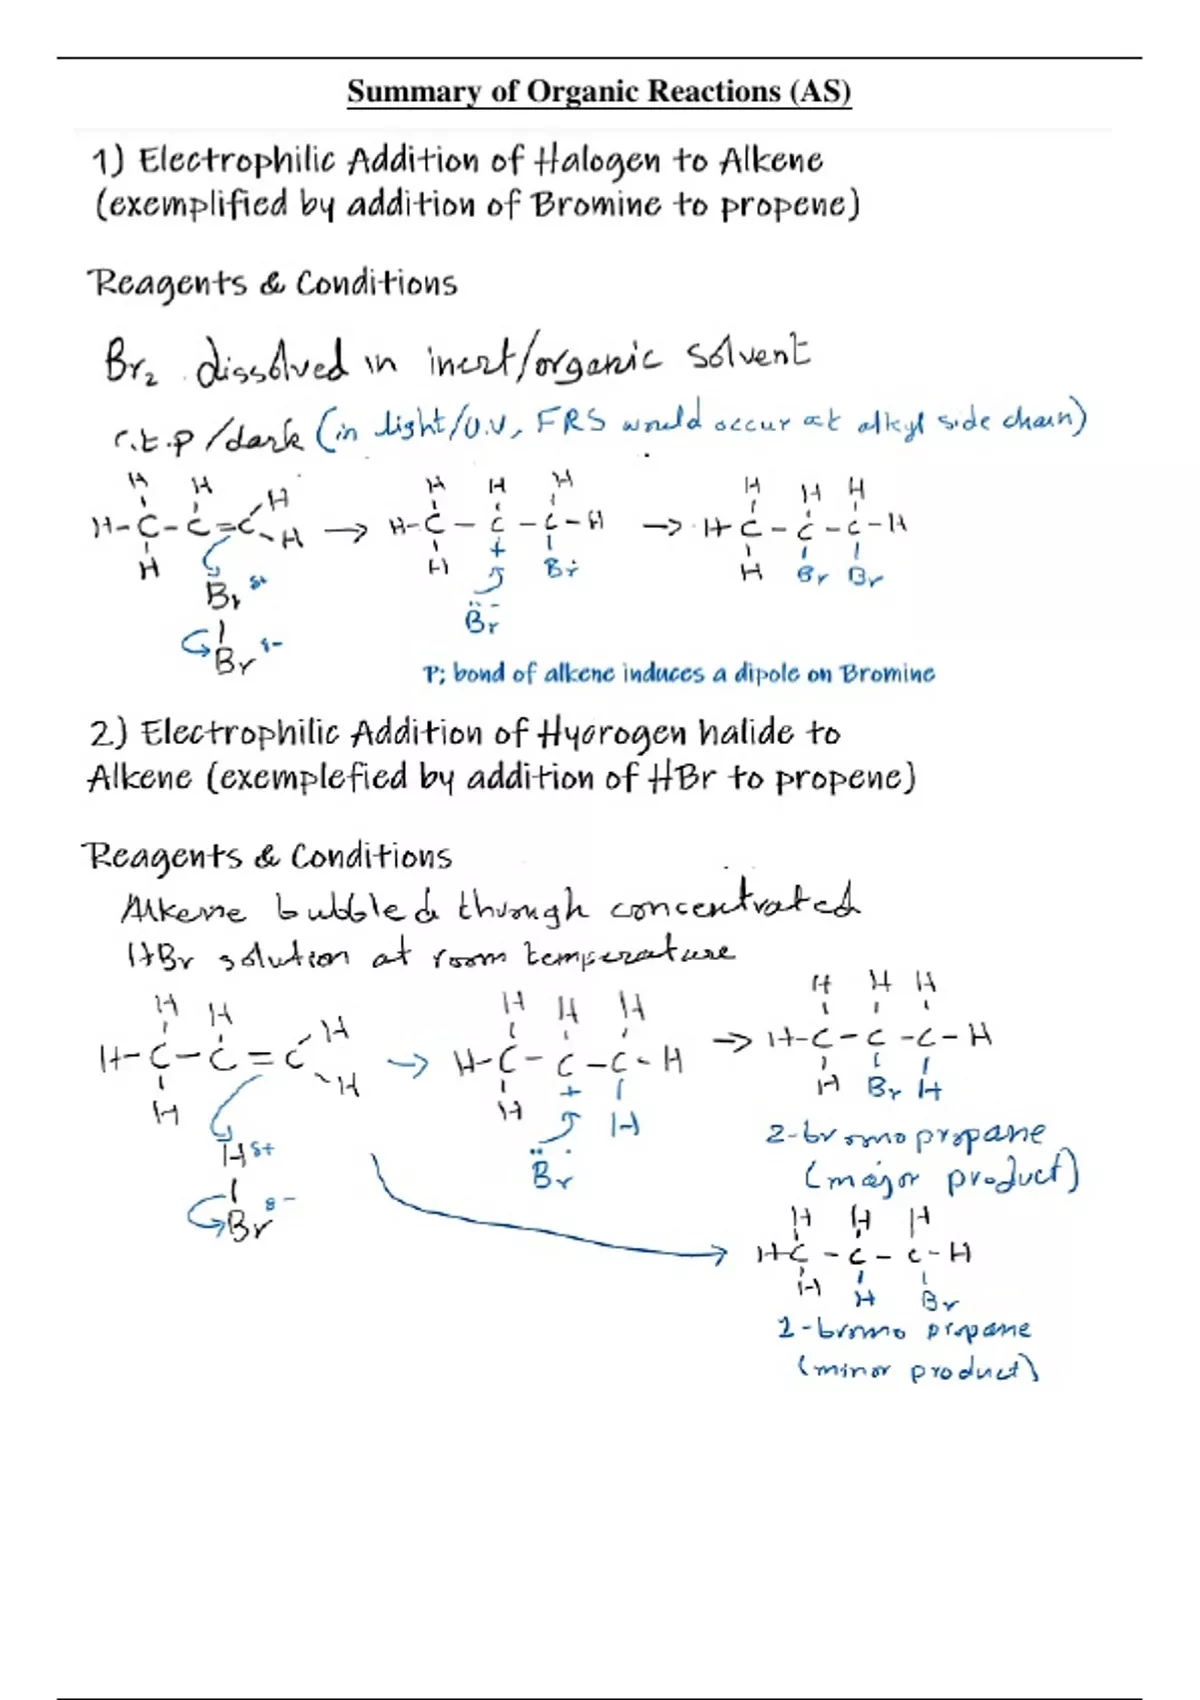 Summary of Organic Reactions (AS)
1) Electrophilic Addition of Halogen to Alkene
(exemplified by addition of Bromine to propene)
Reagents & Conditions
Br₂ dissolved in inert/organic solvent
r.t.p /dark (in light/U.V, FRS would occur at alkyl side chain)
H H H H H H H H H
H-C-C=C H → H-C-C-C-H → H-C-C-C-H
H H + Br H Br Br
Br δ+ Br -
Br δ-
P; bond of alkene induces a dipole on Bromine
2) Electrophilic Addition of Hydrogen halide to
Alkene (exemplefied by addition of HBr to propene)
Reagents & Conditions
Alkene bubbled through concentrated
HBr solution at room temperature
H H H H H H H H H
H-C-C=C H → H-C-C-C-H → H-C-C-C-H
H H + H H Br H
H δ+ Br
Br δ-
2-bromopropane
(major product)
H H H
H-C-C-C-H
H H Br
1-bromo propane
(minor product)